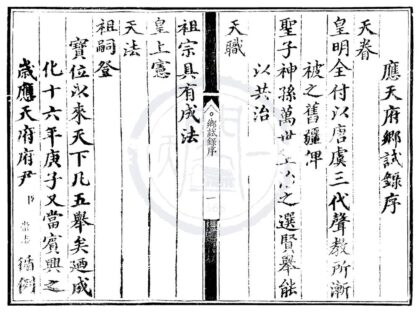 應天府鄉試錄序
天眷
皇明全付以唐虞三代聲教所漸
被之舊疆俾
聖子神孫萬世之選賢舉能
以共治
天職
鄉試錄序
一
祖宗具有成法
皇上憲
天法
祖嗣登
寶位以來天下凡五舉矣廼成
化十六年庚子又當賓興之
歲應天府府尹